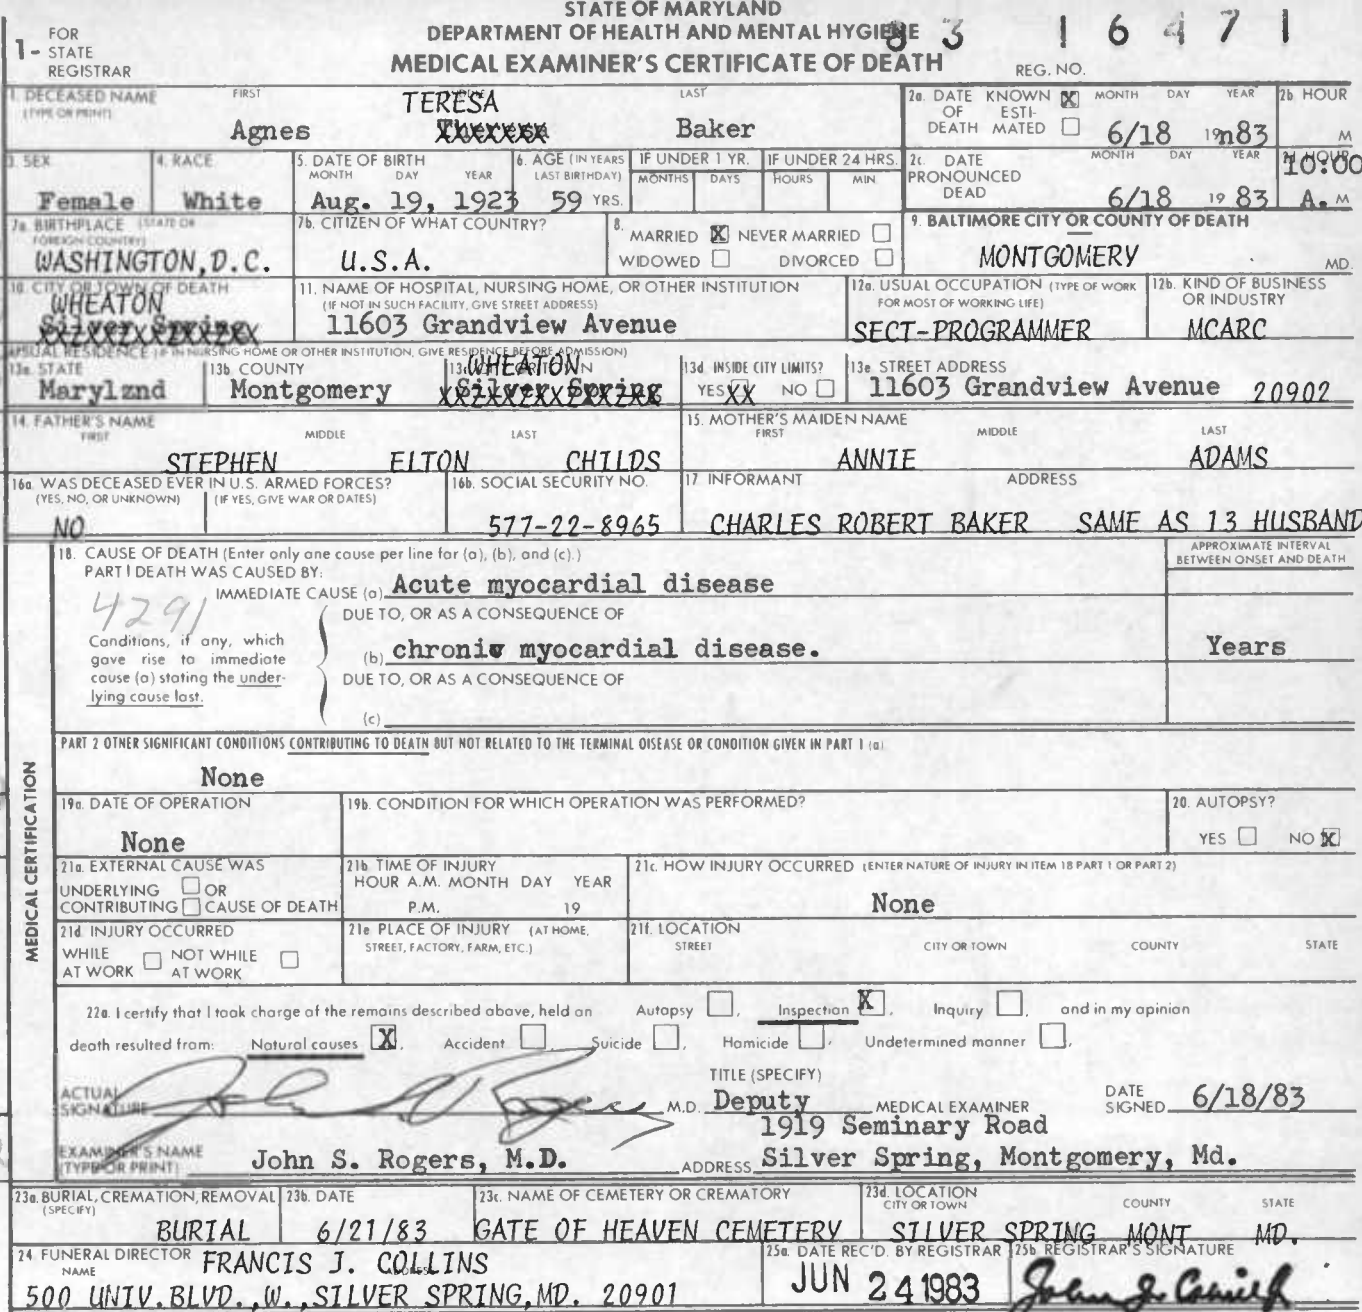 STATE OF MARYLAND
DEPARTMENT OF HEALTH AND MENTAL HYGIENE
83 16471
1- FOR STATE REGISTRAR
MEDICAL EXAMINER'S CERTIFICATE OF DEATH
REG. NO.
1. DECEASED NAME (TYPE OR PRINT) FIRST LAST
Agnes TERESA Baker
2a. DATE OF DEATH KNOWN X ESTIMATED MONTH DAY YEAR
6/18 1983
2b. HOUR M
3. SEX Female
4. RACE White
5. DATE OF BIRTH MONTH DAY YEAR
Aug. 19, 1923
6. AGE (IN YEARS LAST BIRTHDAY) 59 YRS.
IF UNDER 1 YR. MONTHS DAYS
IF UNDER 24 HRS. HOURS MIN
2c. DATE PRONOUNCED DEAD MONTH DAY YEAR
6/18 19 83
HOUR 10:00 A. M
7a. BIRTHPLACE (STATE OR FOREIGN COUNTRY)
WASHINGTON, D.C.
7b. CITIZEN OF WHAT COUNTRY?
U.S.A.
8. MARRIED X NEVER MARRIED
WIDOWED DIVORCED
9. BALTIMORE CITY OR COUNTY OF DEATH
MONTGOMERY MD.
10. CITY OR TOWN OF DEATH
WHEATON
Silver Spring
11. NAME OF HOSPITAL, NURSING HOME, OR OTHER INSTITUTION
(IF NOT IN SUCH FACILITY, GIVE STREET ADDRESS)
11603 Grandview Avenue
12a. USUAL OCCUPATION (TYPE OF WORK FOR MOST OF WORKING LIFE)
SECT-PROGRAMMER
12b. KIND OF BUSINESS OR INDUSTRY
MCARC
USUAL RESIDENCE (IF IN NURSING HOME OR OTHER INSTITUTION, GIVE RESIDENCE BEFORE ADMISSION)
13a. STATE
Marylznd
13b COUNTY
Montgomery
WHEATON
Silver Spring
13d INSIDE CITY LIMITS?
YES XX NO
13e STREET ADDRESS
11603 Grandview Avenue 20902
14. FATHER'S NAME FIRST MIDDLE LAST
STEPHEN ELTON CHILDS
15. MOTHER'S MAIDEN NAME FIRST MIDDLE LAST
ANNIE ADAMS
16a. WAS DECEASED EVER IN U.S. ARMED FORCES?
(YES, NO, OR UNKNOWN) (IF YES, GIVE WAR OR DATES)
NO
16b. SOCIAL SECURITY NO.
577-22-8965
17 INFORMANT ADDRESS
CHARLES ROBERT BAKER SAME AS 13 HUSBAND
18. CAUSE OF DEATH (Enter only one cause per line for (a), (b), and (c).)
APPROXIMATE INTERVAL BETWEEN ONSET AND DEATH
PART I DEATH WAS CAUSED BY:
IMMEDIATE CAUSE (a) Acute myocardial disease
4291
DUE TO, OR AS A CONSEQUENCE OF
Conditions, if any, which gave rise to immediate cause (a) stating the underlying cause last.
(b) chronic myocardial disease. Years
DUE TO, OR AS A CONSEQUENCE OF
(c)
PART 2 OTHER SIGNIFICANT CONDITIONS CONTRIBUTING TO DEATH BUT NOT RELATED TO THE TERMINAL DISEASE OR CONDITION GIVEN IN PART 1 (a)
None
MEDICAL CERTIFICATION
19a. DATE OF OPERATION
None
19b. CONDITION FOR WHICH OPERATION WAS PERFORMED?
20. AUTOPSY?
YES NO X
21a. EXTERNAL CAUSE WAS
UNDERLYING OR
CONTRIBUTING CAUSE OF DEATH
21b TIME OF INJURY
HOUR A.M. MONTH DAY YEAR
P.M. 19
21c. HOW INJURY OCCURRED (ENTER NATURE OF INJURY IN ITEM 18 PART 1 OR PART 2)
None
21d INJURY OCCURRED
WHILE AT WORK NOT WHILE AT WORK
21e PLACE OF INJURY (AT HOME, STREET, FACTORY, FARM, ETC.)
21f. LOCATION
STREET CITY OR TOWN COUNTY STATE
22a. I certify that I took charge of the remains described above, held an Autopsy , Inspection X , Inquiry , and in my opinion
death resulted from: Natural causes X , Accident , Suicide , Homicide , Undetermined manner ,
ACTUAL SIGNATURE John S Rogers M.D.
TITLE (SPECIFY)
Deputy MEDICAL EXAMINER
DATE SIGNED 6/18/83
1919 Seminary Road
EXAMINER'S NAME (TYPE OR PRINT) John S. Rogers, M.D.
ADDRESS Silver Spring, Montgomery, Md.
23a. BURIAL, CREMATION, REMOVAL (SPECIFY)
BURIAL
23b. DATE
6/21/83
23c. NAME OF CEMETERY OR CREMATORY
GATE OF HEAVEN CEMETERY
23d. LOCATION
CITY OR TOWN COUNTY STATE
SILVER SPRING MONT MD.
24. FUNERAL DIRECTOR
NAME FRANCIS J. COLLINS
500 UNIV. BLVD., W., SILVER SPRING, MD. 20901
25a. DATE REC'D. BY REGISTRAR
JUN 24 1983
25b. REGISTRAR'S SIGNATURE